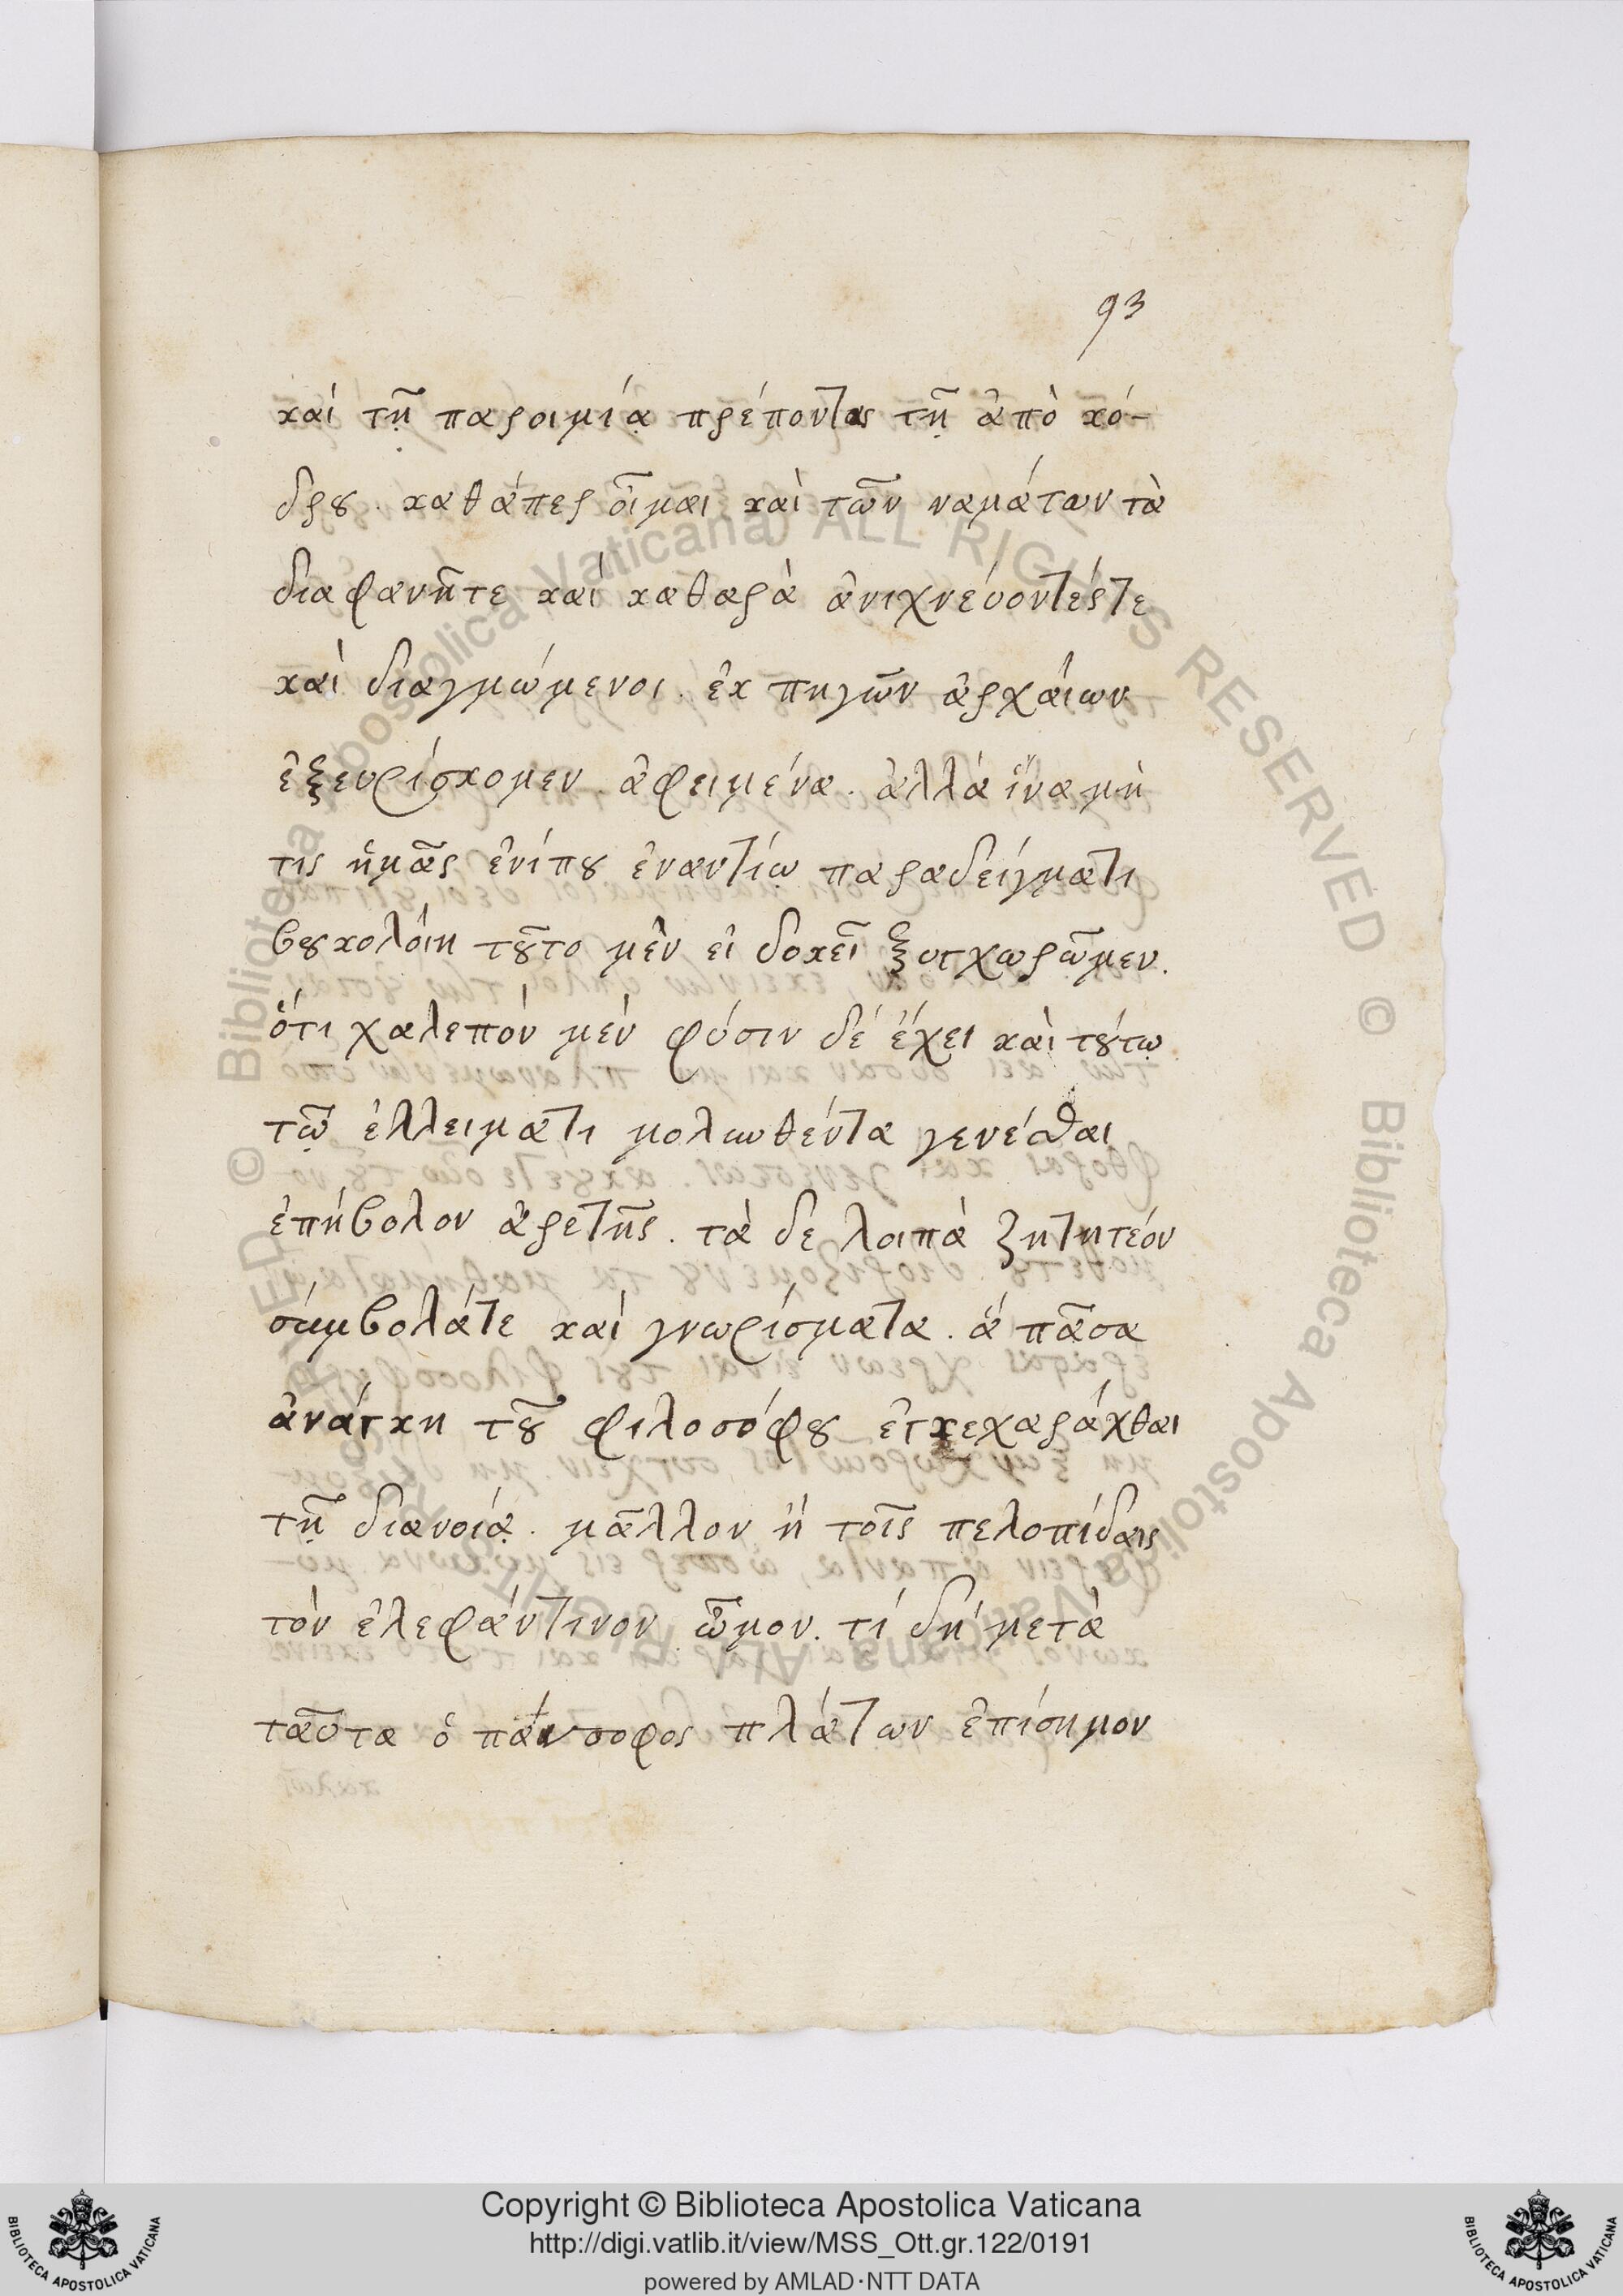 93
καί τῇ παροιμίᾳ πρέποντας τῇ ἀπὸ κό-
δρου. καθάπερ οἶμαι καὶ τῶν ναμάτων τὰ
διαφανῆτε καί καθαρὰ ἀνιχνέυοντέςτε
καὶ διαγμώμενοι. ἐκ πηγῶν ἀρχάιων
ἐξευρίσκομεν. ἀφειμένα. ἀλλά ἵνα μή
τις ἡμᾶς ἐνίπου ἐναντίῳ παραδείγματι
βουκολόιη τοῦτο μὲν εἰ δοκεῖ ξυγχωρῶμεν.
ὅτι χαλεπόν μέν φύσιν δέ ἔχει καὶ τούτῳ
τῷ ἐλλειματι μολωθέντα γενέσθαι
ἐπήβολον ἀρετῆς. τὰ δε λοιπὰ ζητητέον
σύμβολάτε καί γνωρίσματα. ἅ πᾶσα
ἀνάγκη τοῦ φιλοσόφου ἐγκεχαράχθαι
τῇ διανοίᾳ. μᾶλλον ἤ τοῖς πελοπίδαις
τὸν ἐλεφάντινον ὦμον. τί δή μετὰ
ταῦτα ὁ πάνσοφος πλάτων ἐπίσημον
Copyright © Biblioteca Apostolica Vaticana
http://digi.vatlib.it/view/MSS_Ott.gr.122/0191
powered by AMLAD·NTT DATA
BIBLIOTECA APOSTOLICA VATICANA
BIBLIOTECA APOSTOLICA VATICANA